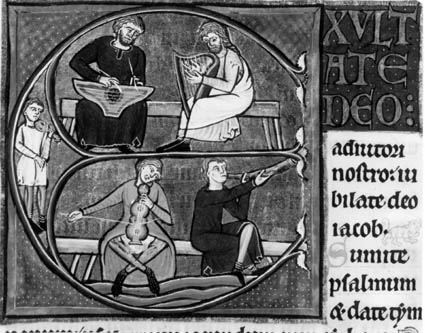 EXVLT
ATE
DEO:
adiutori
nostro: iu
bilate deo
iacob.
Sumite
psalmum
& date tym